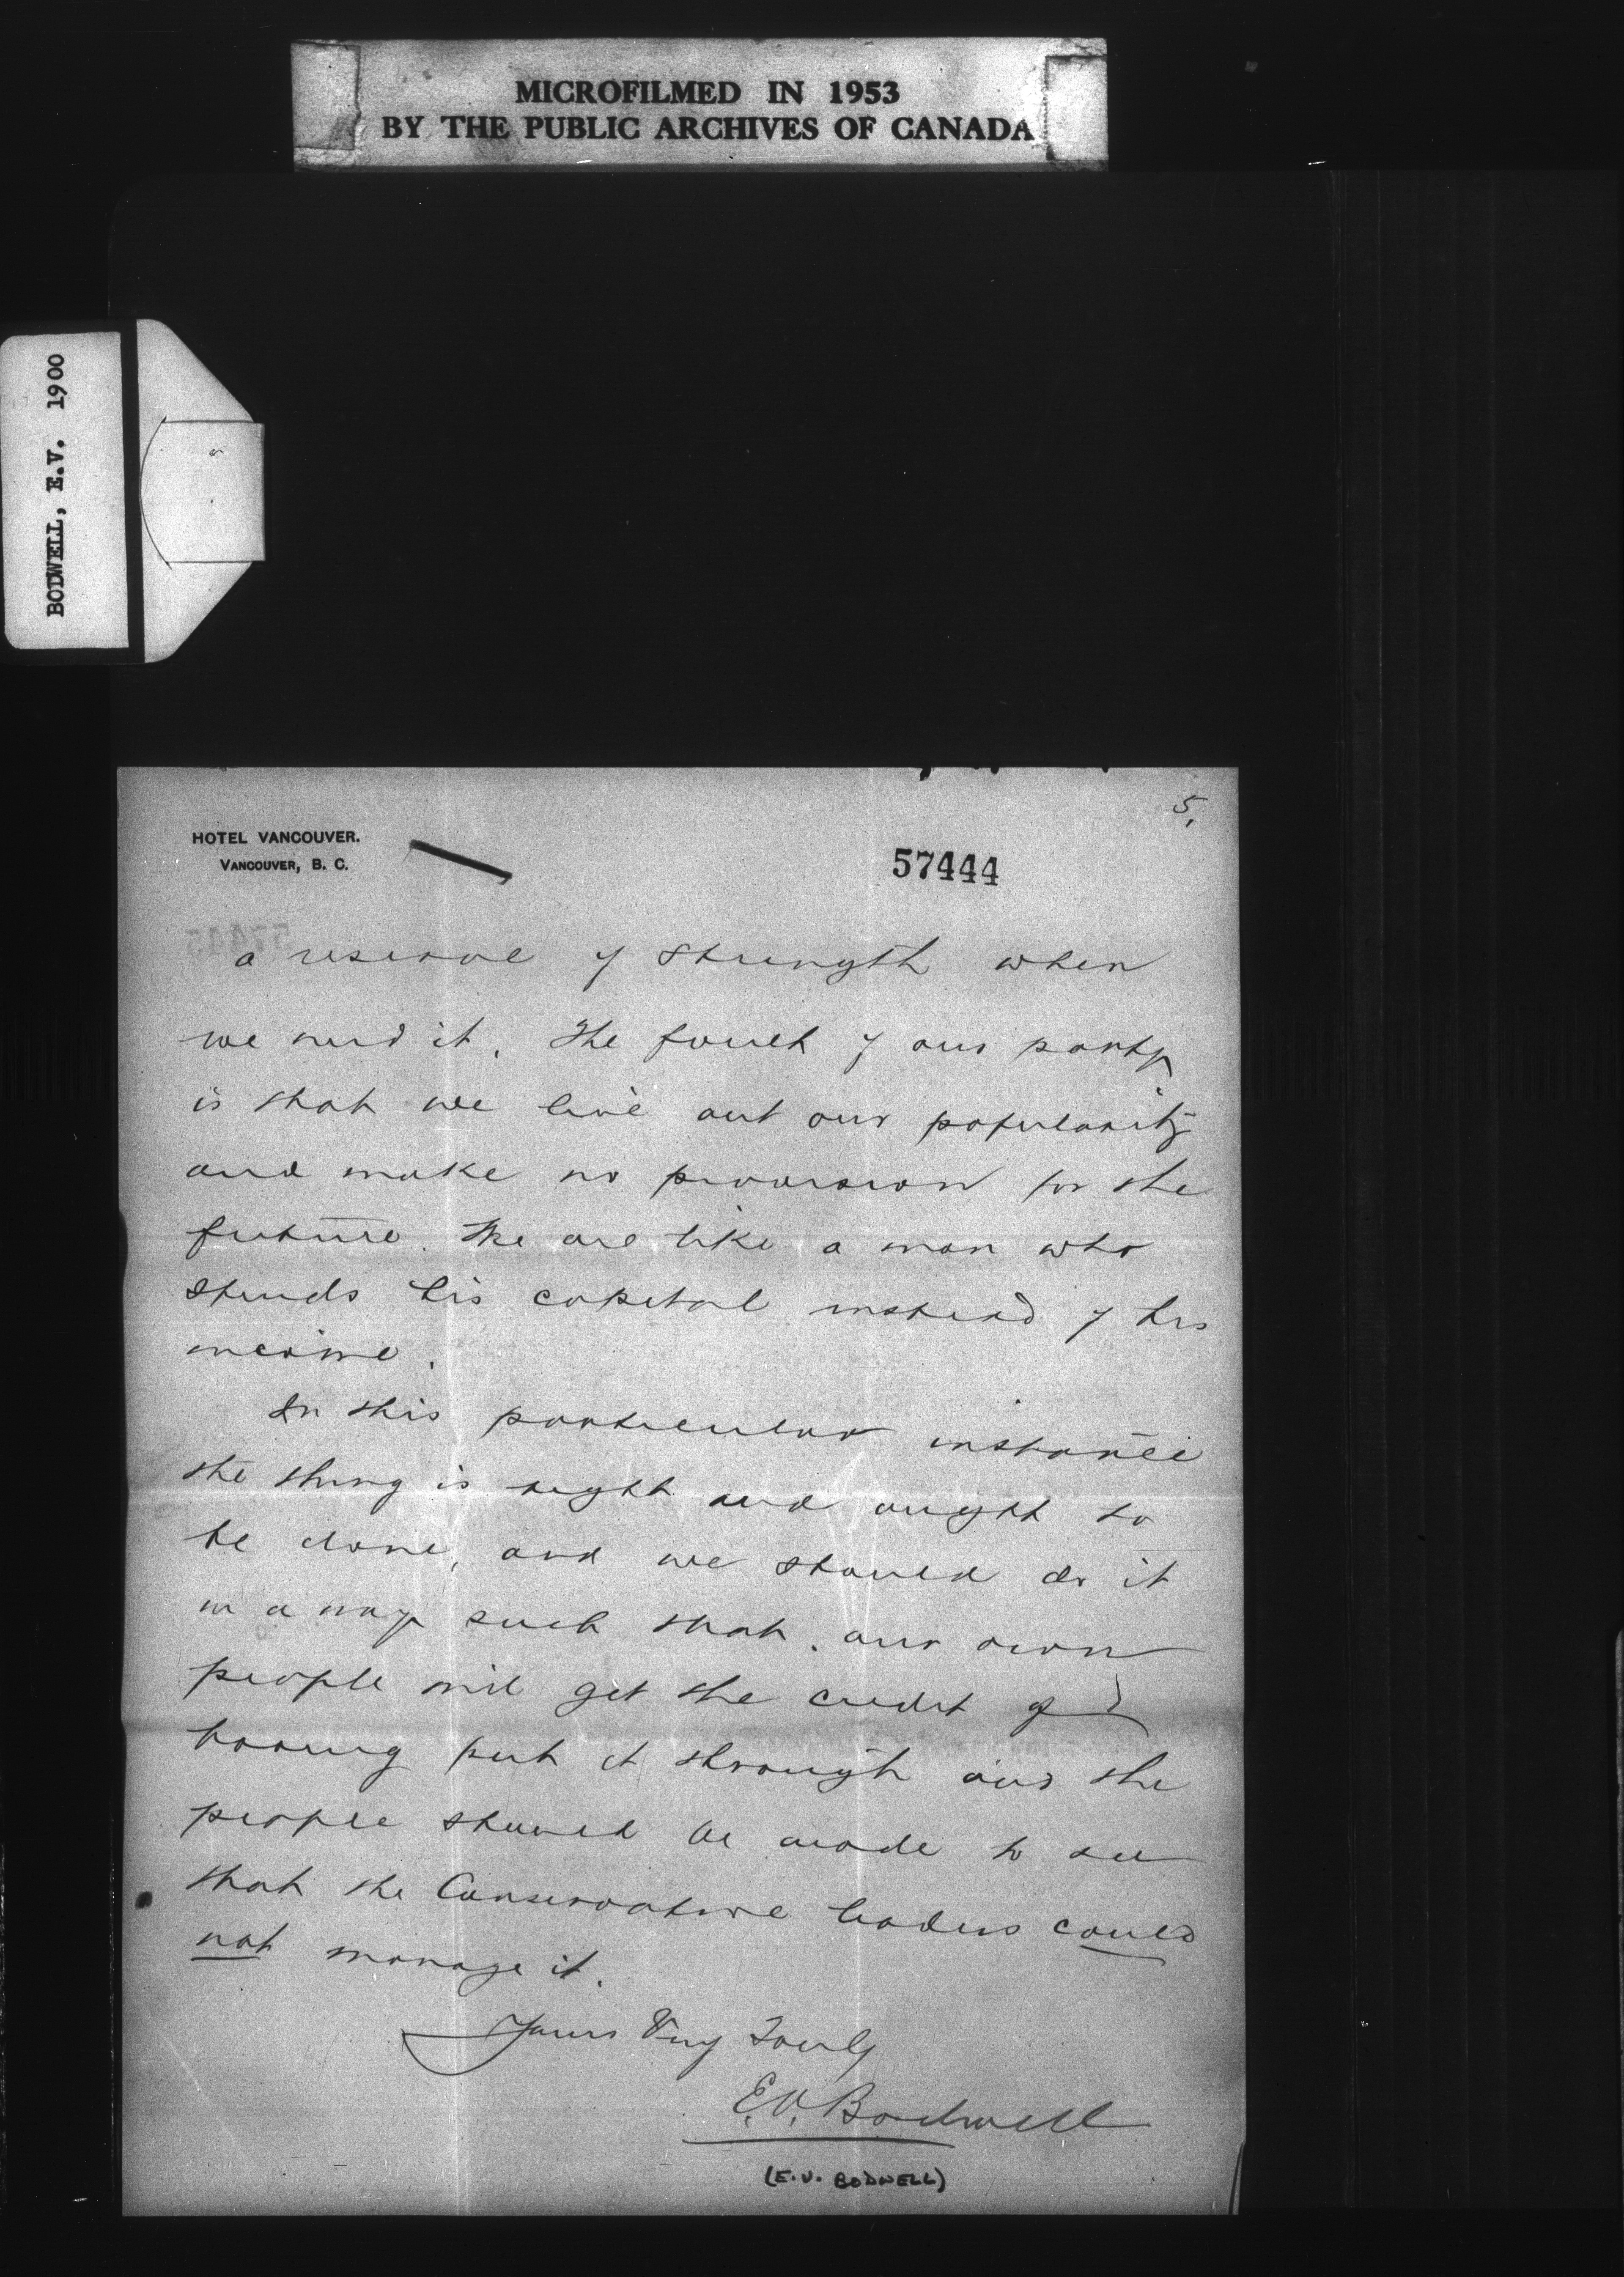 MICROFILMED IN 1953
BY THE PUBLIC ARCHIVES OF CANADA
BODWELL, E.V. 1900
5.
HOTEL VANCOUVER.
VANCOUVER, B. C.
57444
57445
a reserve of strength when
we need it. The fault of our party
is that we live out our popularity
and make no provision for the
future. We are like a man who
spends his capital instead of his
income.
In this particular instance
the thing is right and ought to
be done, and we should do it
in a way such that our own
people will get the credit of
having put it through and the
people should be made to see
that the Conservative leaders could
not manage it.
Yours Very Truly
E.V. Bodwell
(E.V. BODWELL)